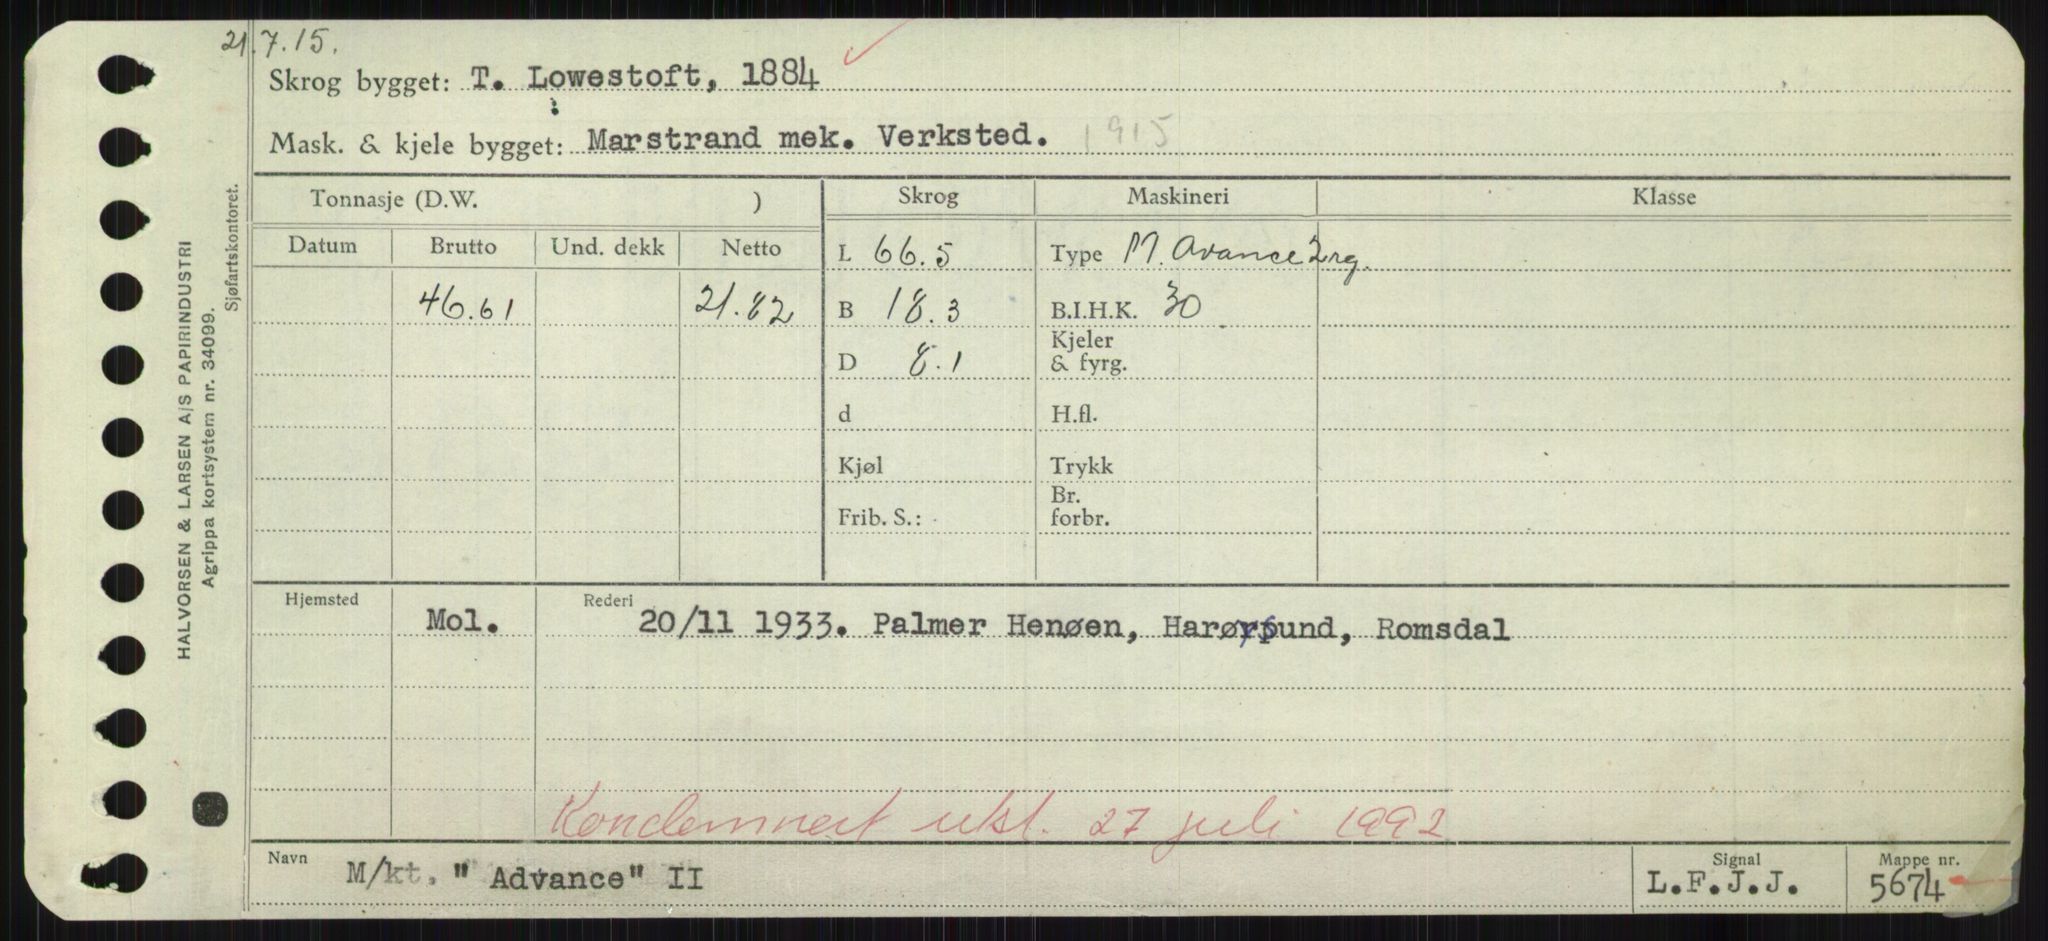 21.7.15.
Skrog bygget: T. Lowestoft, 1884
Mask. & kjele bygget: Marstrand mek. Verksted. 1915
Tonnasje (D.W. ) Skrog Maskineri Klasse
Datum Brutto Und. dekk Netto
L 66.5 Type M. Avance 2rg.
46.61 21.82 B 18.3 B.I.H.K. 30
D 8.1 Kjeler & fyrg.
d H.fl.
Kjøl Trykk
Frib. S.: Br. forbr.
Hjemsted Rederi
Mol. 20/11 1933. Palmer Henøen, Harøysund, Romsdal
Kondemnert utst. 27 juli 1992
Navn Signal Mappe nr.
M/kt. "Advance" II L.F.J.J. 5674
HALVORSEN & LARSEN A/S PAPIRINDUSTRI
Agrippa kortsystem nr. 34099.
Sjøfartskontoret.